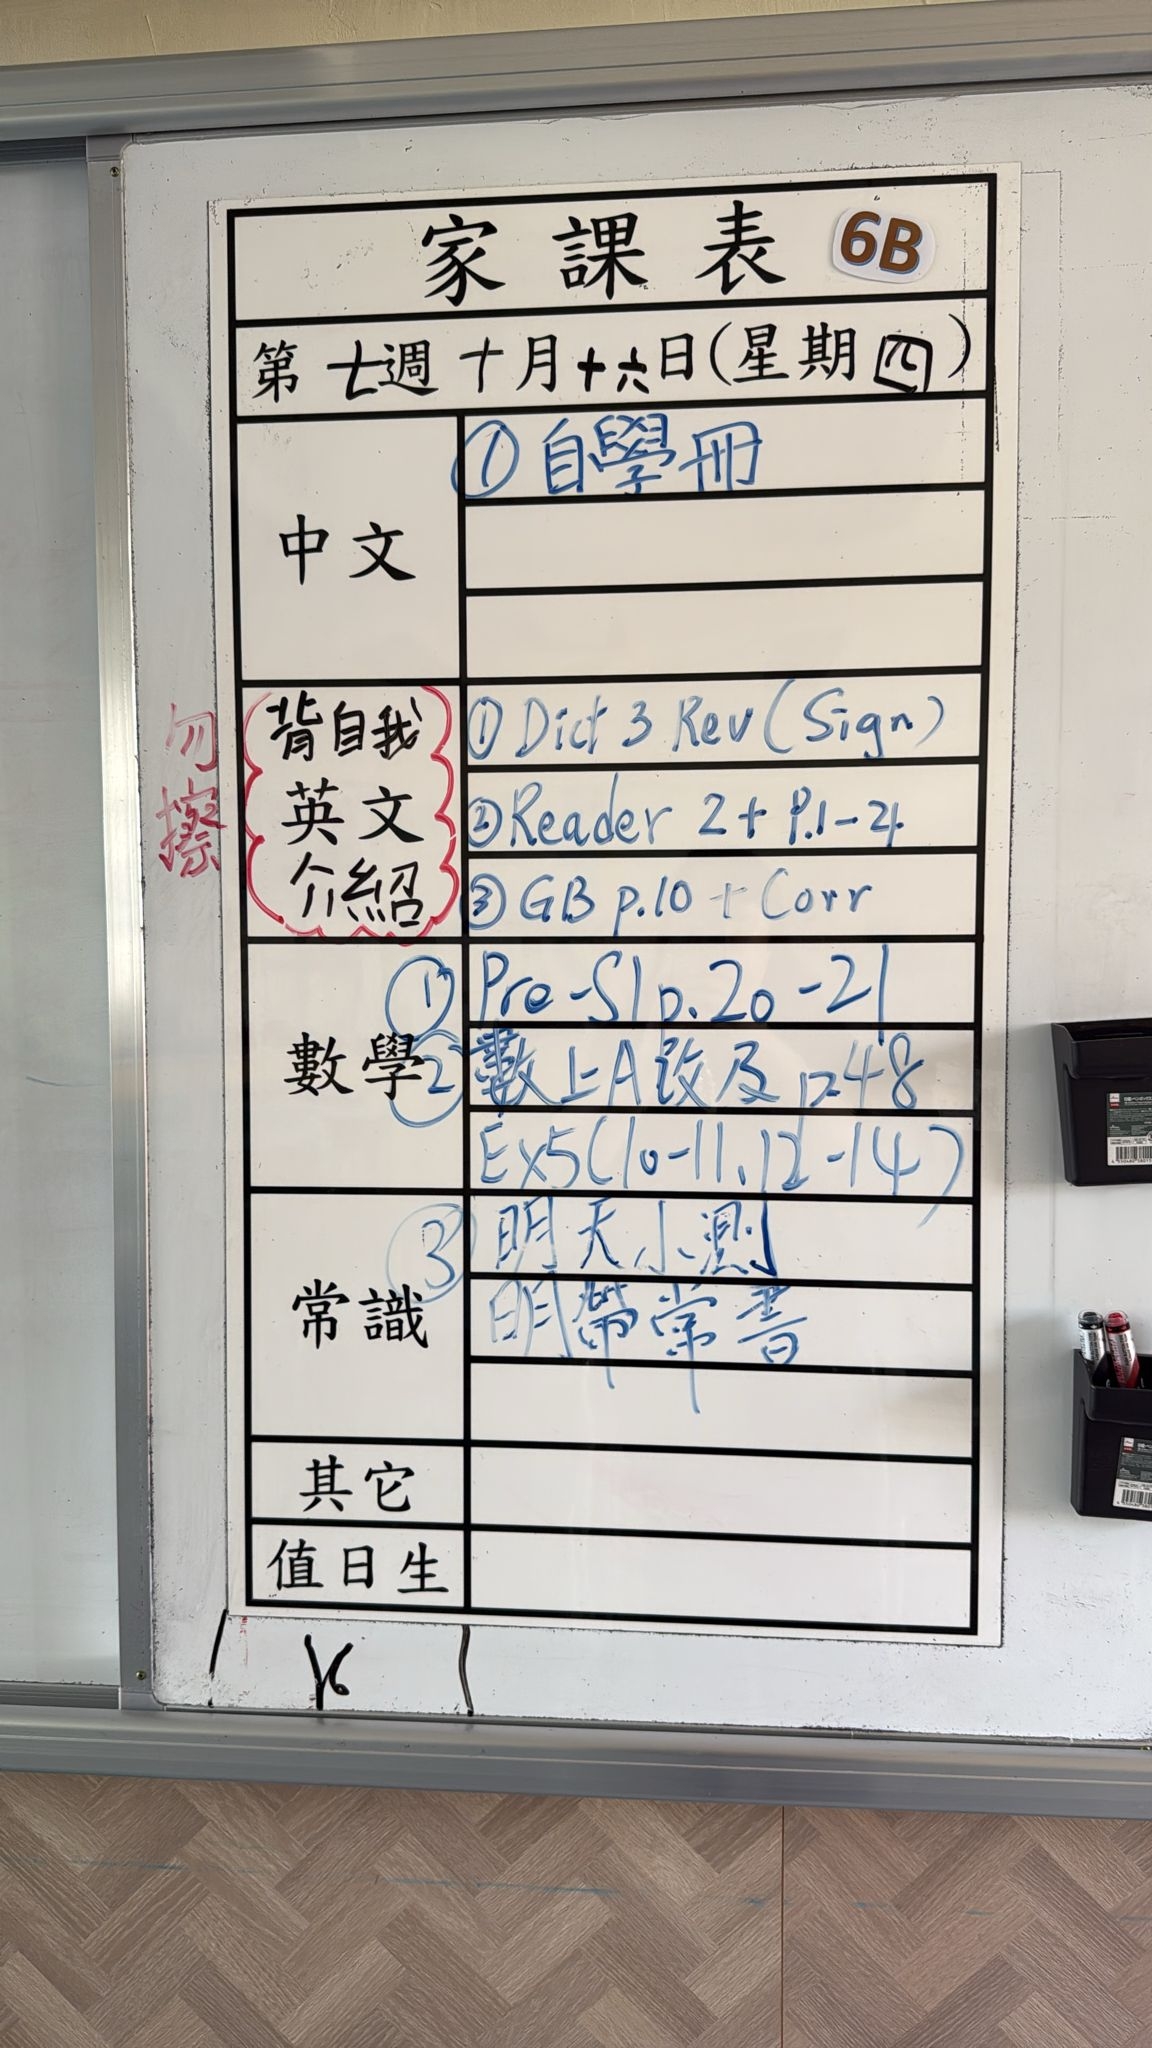 家課表 6B
第七週十月十六日(星期四)
中文
① 自學冊
勿擦
背自我
英文
介紹
① Dict 3 Rev (Sign)
② Reader 2 + P.1-24
③ GB p.10 + Corr
數學
① Pre-S1 p.20-21
② 數上A改及 p.48
Ex5(10-11,12-14)
常識
③ 明天小測
明帶常書
其它
值日生